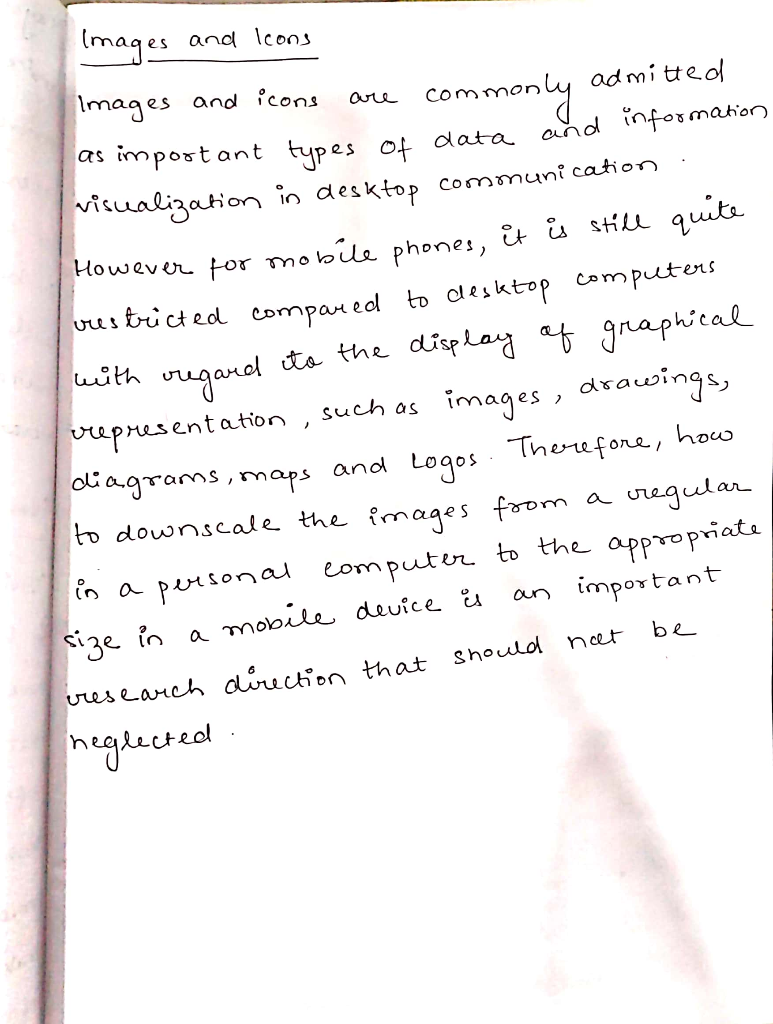 Images and Icons
Images and icons are commonly admitted
as important types of data and information
visualization in desktop communication.
However for mobile phones, it is still quite
restricted compared to desktop computers
with regard to the display of graphical
representation, such as images, drawings,
diagrams, maps and Logos. Therefore, how
to downscale the images from a regular
in a personal computer to the appropriate
size in a mobile device is an important
research direction that should not be
neglected.